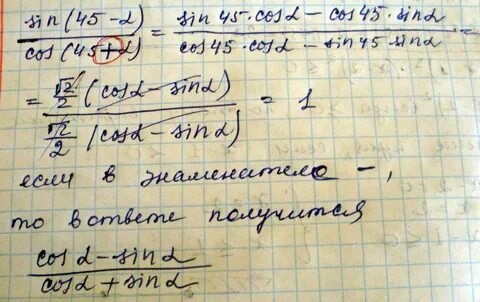 sin(45-α)/cos(45+α) = (sin45·cosα - cos45·sinα)/(cos45·cosα - sin45 sinα) =
= (√2/2 (cosα - sinα))/(√2/2 (cosα - sinα)) = 1
если в знаменателе -,
то в ответе получится
(cosα - sinα)/(cosα + sinα)